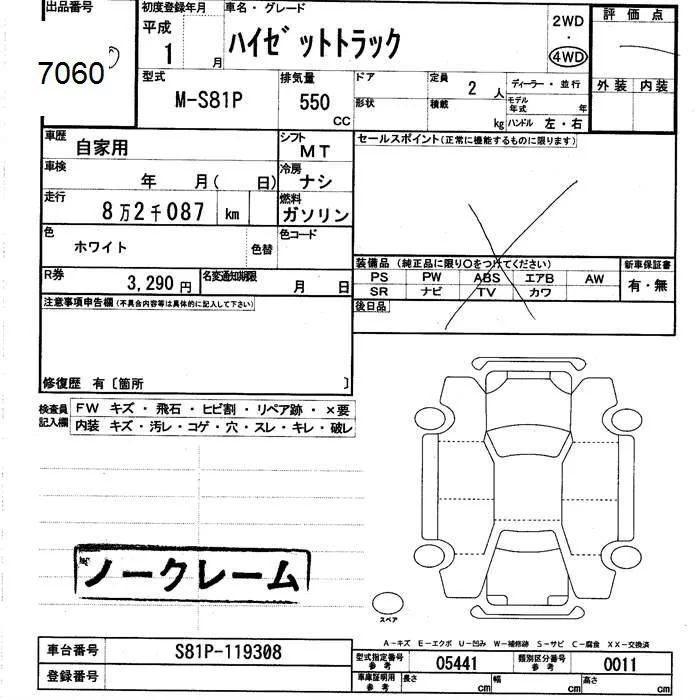 出品番号 初度登録年月 車名・グレード 2WD 評価点
7060 平成 1 月 ハイゼットトラック ・ 4WD
外装 内装
型式 M-S81P 排気量 550 CC ドア 定員 2 人 ディーラー・並行
形状 積載 kg モデル年式 年
ハンドル 左・右
車歴 自家用 シフト MT セールスポイント(正常に機能するものに限ります)
車検 年 月( 日) 冷房 ナシ
走行 8万2千087 km 燃料 ガソリン
色 ホワイト 色替 色コード
装備品 (純正品に限り○をつけてください) 新車保証書
R券 3,290円 名変通知期限 月 日 PS PW ABS エアB AW 有・無
SR ナビ TV カワ
注意事項申告欄(不具合内容等は具体的に記入して下さい) 後日品
修復歴 有〔箇所 〕
検査員記入欄 FW キズ・飛石・ヒビ割・リペア跡・×要
内装 キズ・汚レ・コゲ・穴・スレ・キレ・破レ
ノークレーム
スペア
A-キズ E-エクボ U-凹み W-補修跡 S-サビ C-腐食 XX-交換済
車台番号 S81P-119308 型式指定番号 参考 05441 類別区分番号 参考 0011
登録番号 車庫証明用 参考 長さ cm 幅 cm 高さ cm